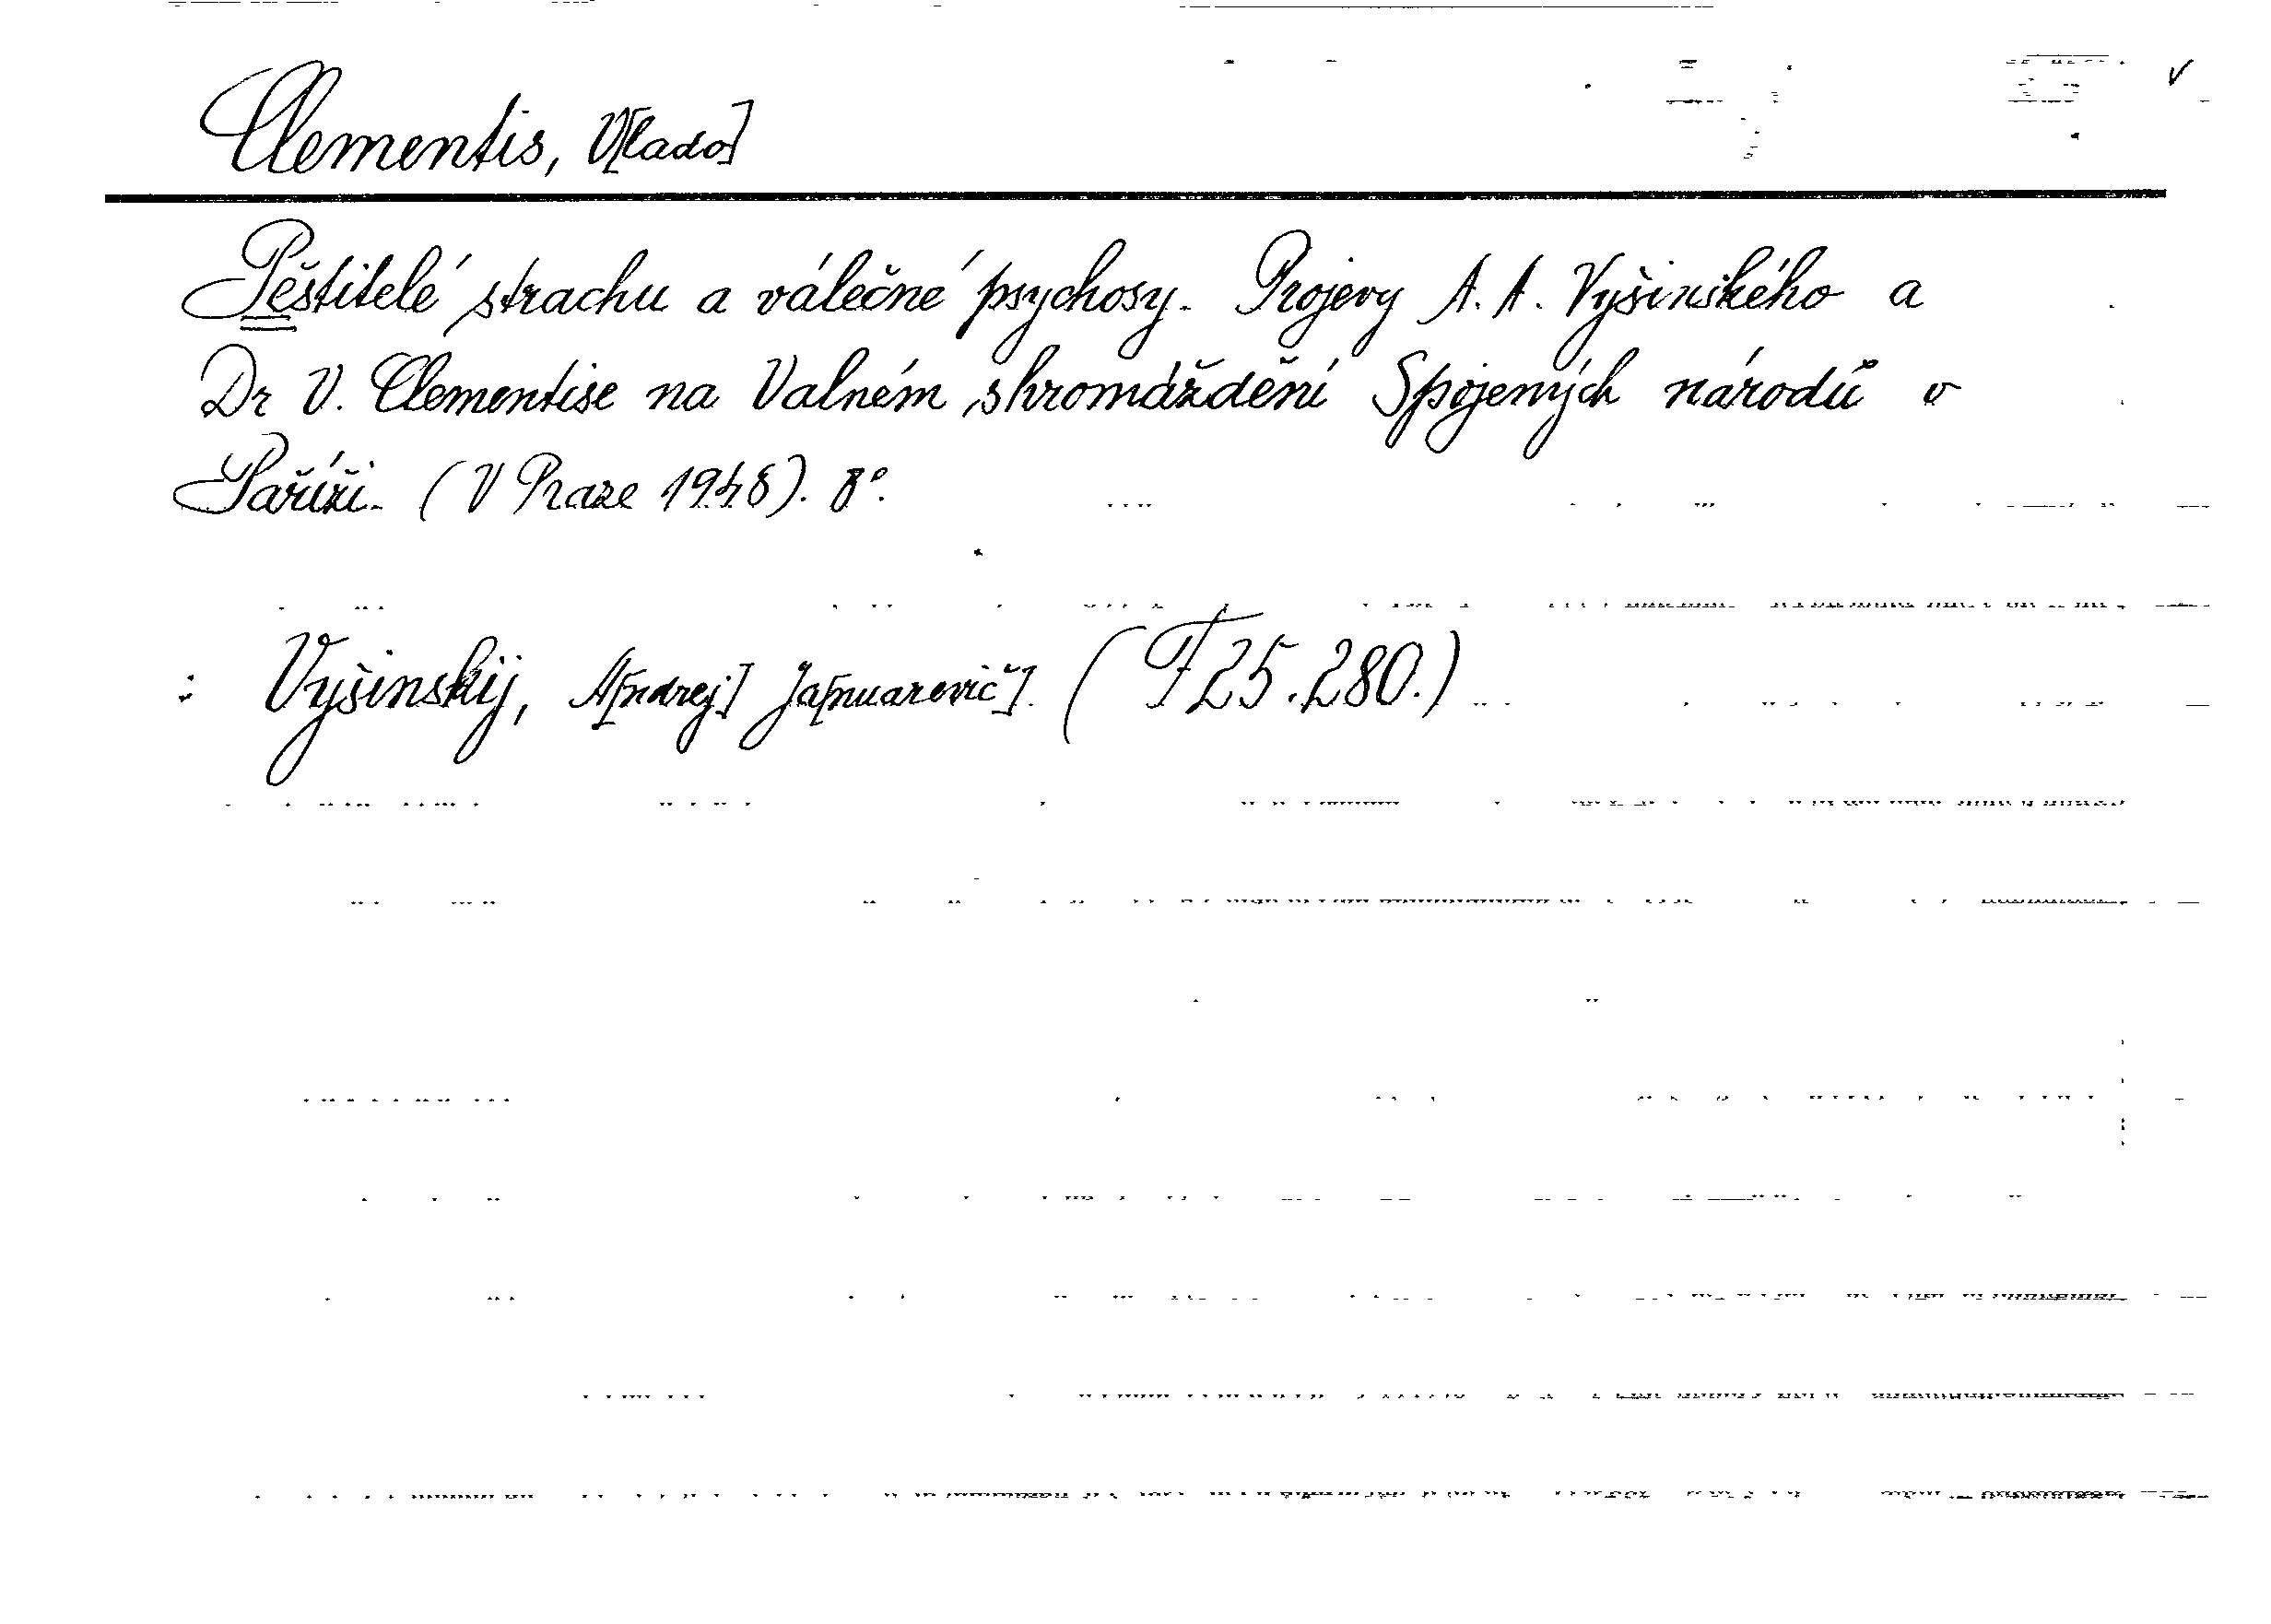 Clementis, V[lado]
Pěstitelé strachu a válečné psychosy. Projevy A. A. Vyšinského a
Dr V. Clementise na Valném shromáždění Spojených národů v
Paříži. (V Praze 1948). 8°.
: Vyšinskij, A[ndrej] Ja[nuarovič]. (F 25.280.)